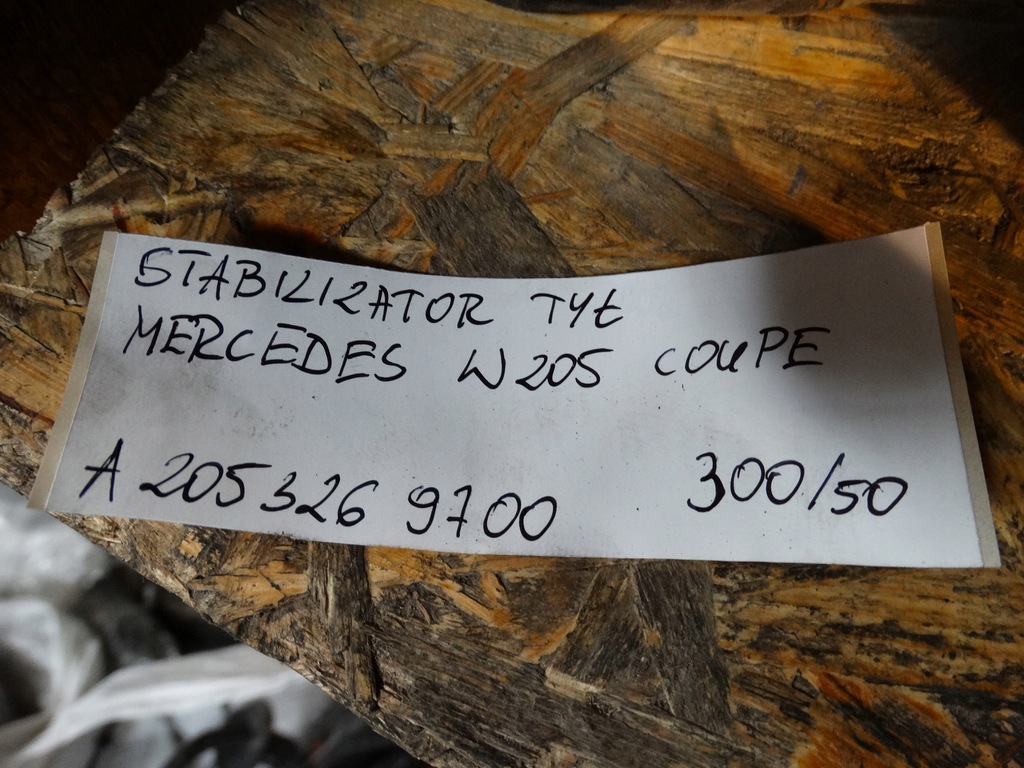 STABILIZATOR TYŁ
MERCEDES W205 COUPE
A 205 326 9700 300/50